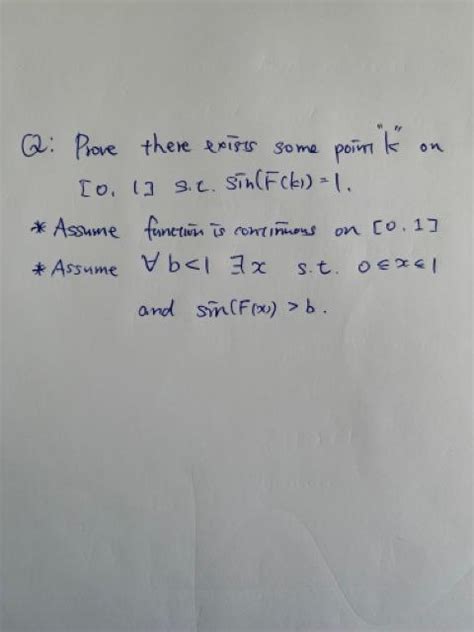 Q: Prove there exists some point "k" on
[0, 1] s.t. sin(F(k)) = 1.
* Assume function is continuous on [0.1]
* Assume ∀ b<1 ∃x s.t. 0≤x≤1
and sin(F(x) > b.